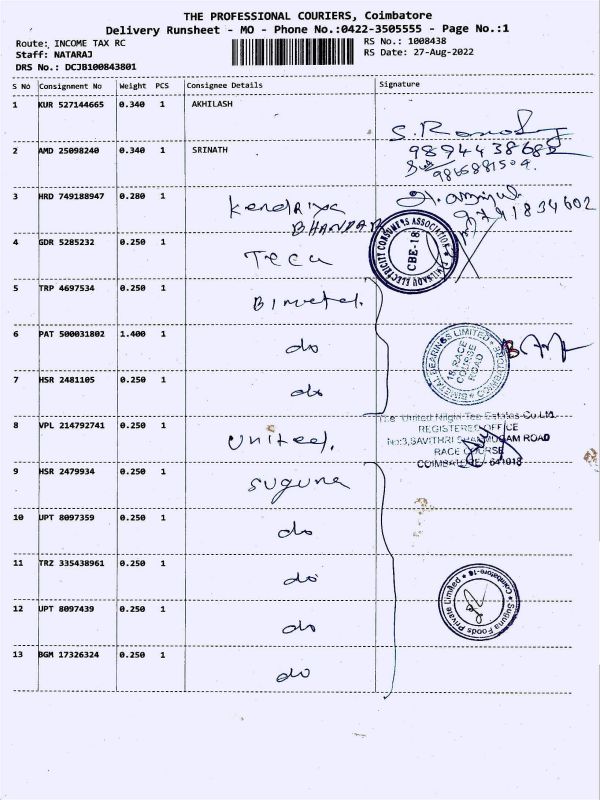 THE PROFESSIONAL COURIERS, Coimbatore
Delivery Runsheet - MO - Phone No.:0422-3505555 - Page No.:1
Route: INCOME TAX RC
RS No.: 1008438
Staff: NATARAJ
RS Date: 27-Aug-2022
DRS No.: DCJB100843801
S No Consignment No Weight PCS Consignee Details Signature
1 KUR 527144665 0.340 1 AKHILASH
2 AMD 25098240 0.340 1 SRINATH
9894438682
9865881504.
3 HRD 749188947 0.280 1 Kendriya BHANDAR
9791834602
4 GDR 5285232 0.250 1 Teca
ELECTRICITY CONSUMERS ASSOCIATION
CBE-18
5 TRP 4697534 0.250 1 Bimetal.
6 PAT 500031802 1.400 1 do
BIMETAL BEARINGS LIMITED
18 RACE COURSE ROAD
7 HSR 2481105 0.250 1 do
8 VPL 214792741 0.250 1 United.
The United Nilgiri Tea Estates Co Ltd.
REGISTERED OFFICE
No:3,SAVITHRI SHANMUGAM ROAD
RACE COURSE
COIMBATORE - 641018
9 HSR 2479934 0.250 1 Suguna
10 UPT 8097359 0.250 1 do
11 TRZ 335438961 0.250 1 do
12 UPT 8097439 0.250 1 do
Suguna Foods Private Limited
Coimbatore-18
13 BGM 17326324 0.250 1 do